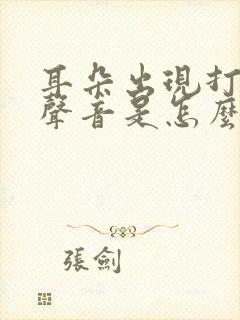 耳朵出現打
聲音是怎麼
張劍